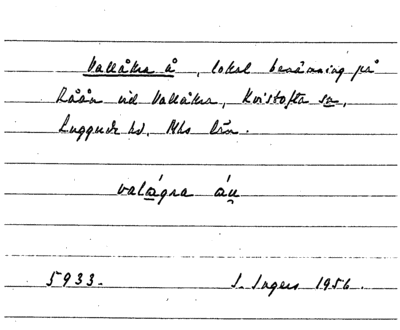 Vallåkra å, lokal benämning på
Råån vid Vallåkra, Kvistofta sn,
Luggude hd, Mhs län.
valågra ån
5933. I. Ingers 1956.